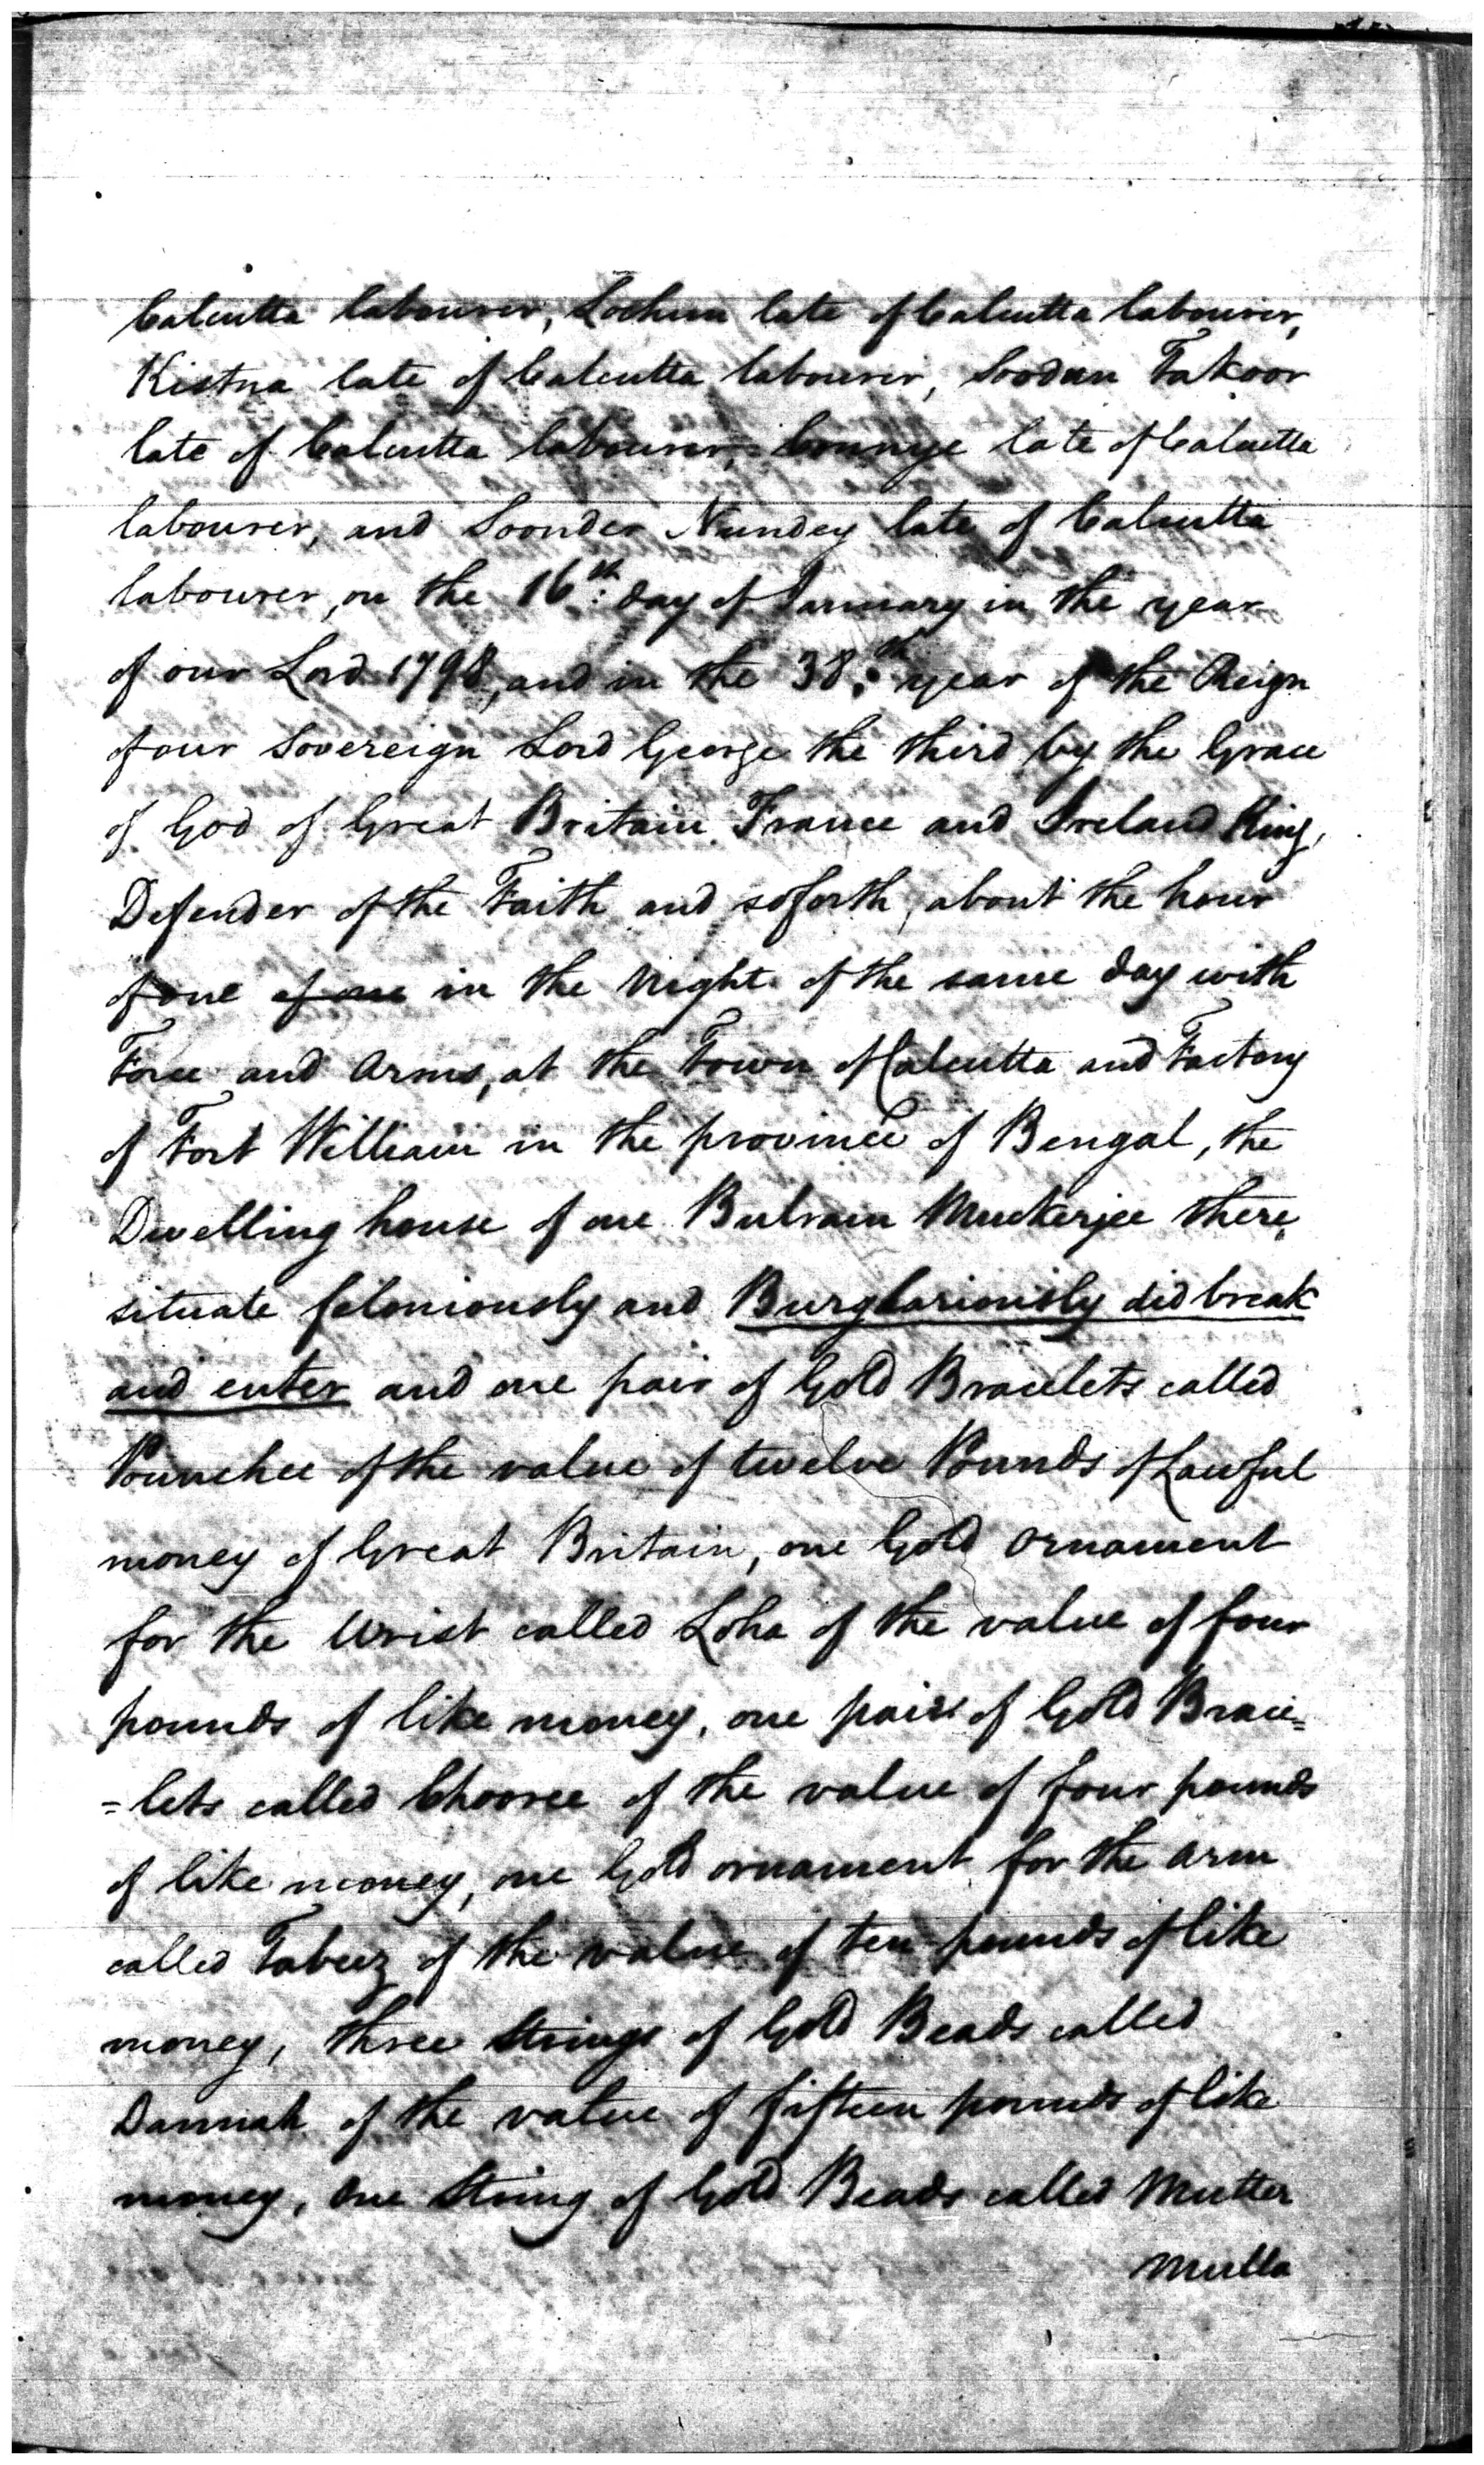 Calcutta labourer, Lochun late of Calcutta labourer,
Kistna late of Calcutta labourer, Soodun Takoor
late of Calcutta labourer, Connye late of Calcutta
labourer, and Soonder Nundey late of Calcutta
labourer, on the 16th. day of January in the year
of our Lord 1798, and in the 38th. year of the Reign
of our Sovereign Lord George the third by the Grace
of God of Great Britain France and Ireland King,
Defender of the Faith and soforth, about the hour
of one of one in the Night of the same day with
Force and Arms, at the Town of Calcutta and Factory
of Fort William in the province of Bengal, the
Dwelling house of one Bulram Muckerjee there
situate feloniously and Burglariously did break
and enter and one pair of Gold Bracelets called
Pounchee of the value of twelve Pounds of Lawful
money of Great Britain, one Gold Ornament
for the Wrist called Loha of the value of four
pounds of like money, one pair of Gold Brace=
=lets called Chooree of the value of four pounds
of like money, one Gold ornament for the arm
called Tabeez of the value of ten pounds of like
money, three Strings of Gold Beads called
Dannah of the value of fifteen pounds of like
money, one String of Gold Beads called Mutter
Mulla